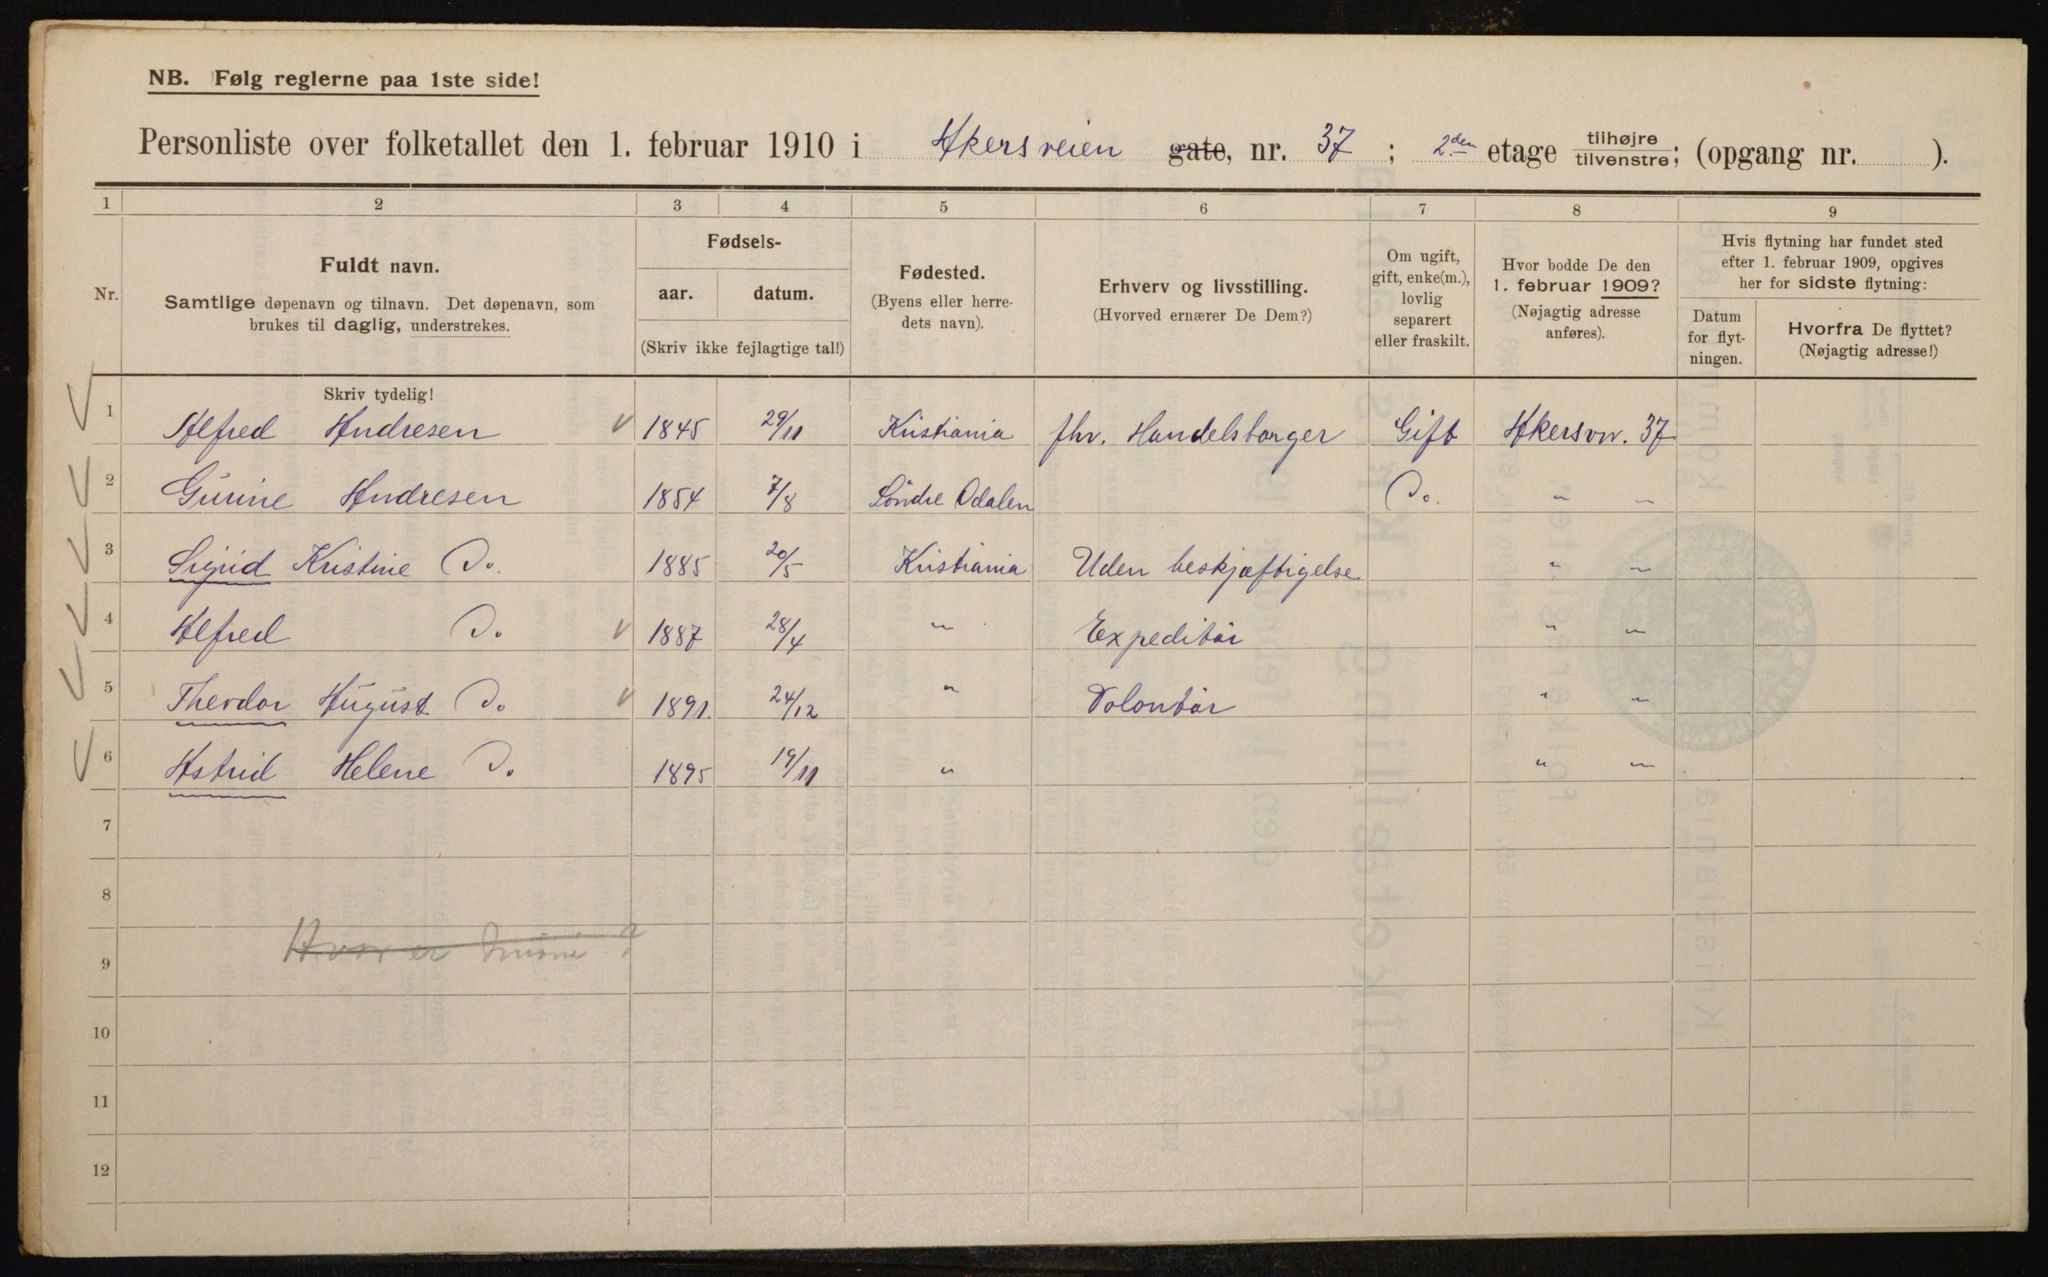 NB. Følg reglerne paa 1ste side!
Personliste over folketallet den 1. februar 1910 i Akersveien gate, nr. 37 ; 2den etage tilhøjre tilvenstre; (opgang nr. ).
1 2 3 4 5 6 7 8 9
Nr.
Fuldt navn.
Samtlige døpenavn og tilnavn. Det døpenavn, som
brukes til daglig, understrekes.
Fødsels-
aar. datum.
(Skriv ikke fejlagtige tal!)
Fødested.
(Byens eller herre-
dets navn).
Erhverv og livsstilling.
(Hvorved ernærer De Dem?)
Om ugift,
gift, enke(m.),
lovlig
separert
eller fraskilt.
Hvor bodde De den
1. februar 1909?
(Nøjagtig adresse
anføres).
Hvis flytning har fundet sted
efter 1. februar 1909, opgives
her for sidste flytning:
Datum
for flyt-
ningen.
Hvorfra De flyttet?
(Nøjagtig adresse!)
Skriv tydelig!
1 Alfred Andresen 1845 29/11 Kristiania fhv. Handelsborger Gift Akersvn. 37
2 Gurine Andresen 1854 7/8 Søndre Odalen Do. " "
3 Sigrid Kristine Do. 1885 20/5 Kristiania Uden beskjæftigelse " "
4 Alfred Do 1887 28/4 " Expeditør " "
5 Theodor August Do 1891. 24/12 " Volontør " "
6 Astrid Helene Do 1895 19/11 " " "
7
8
9 Hvor er ?
10
11
12